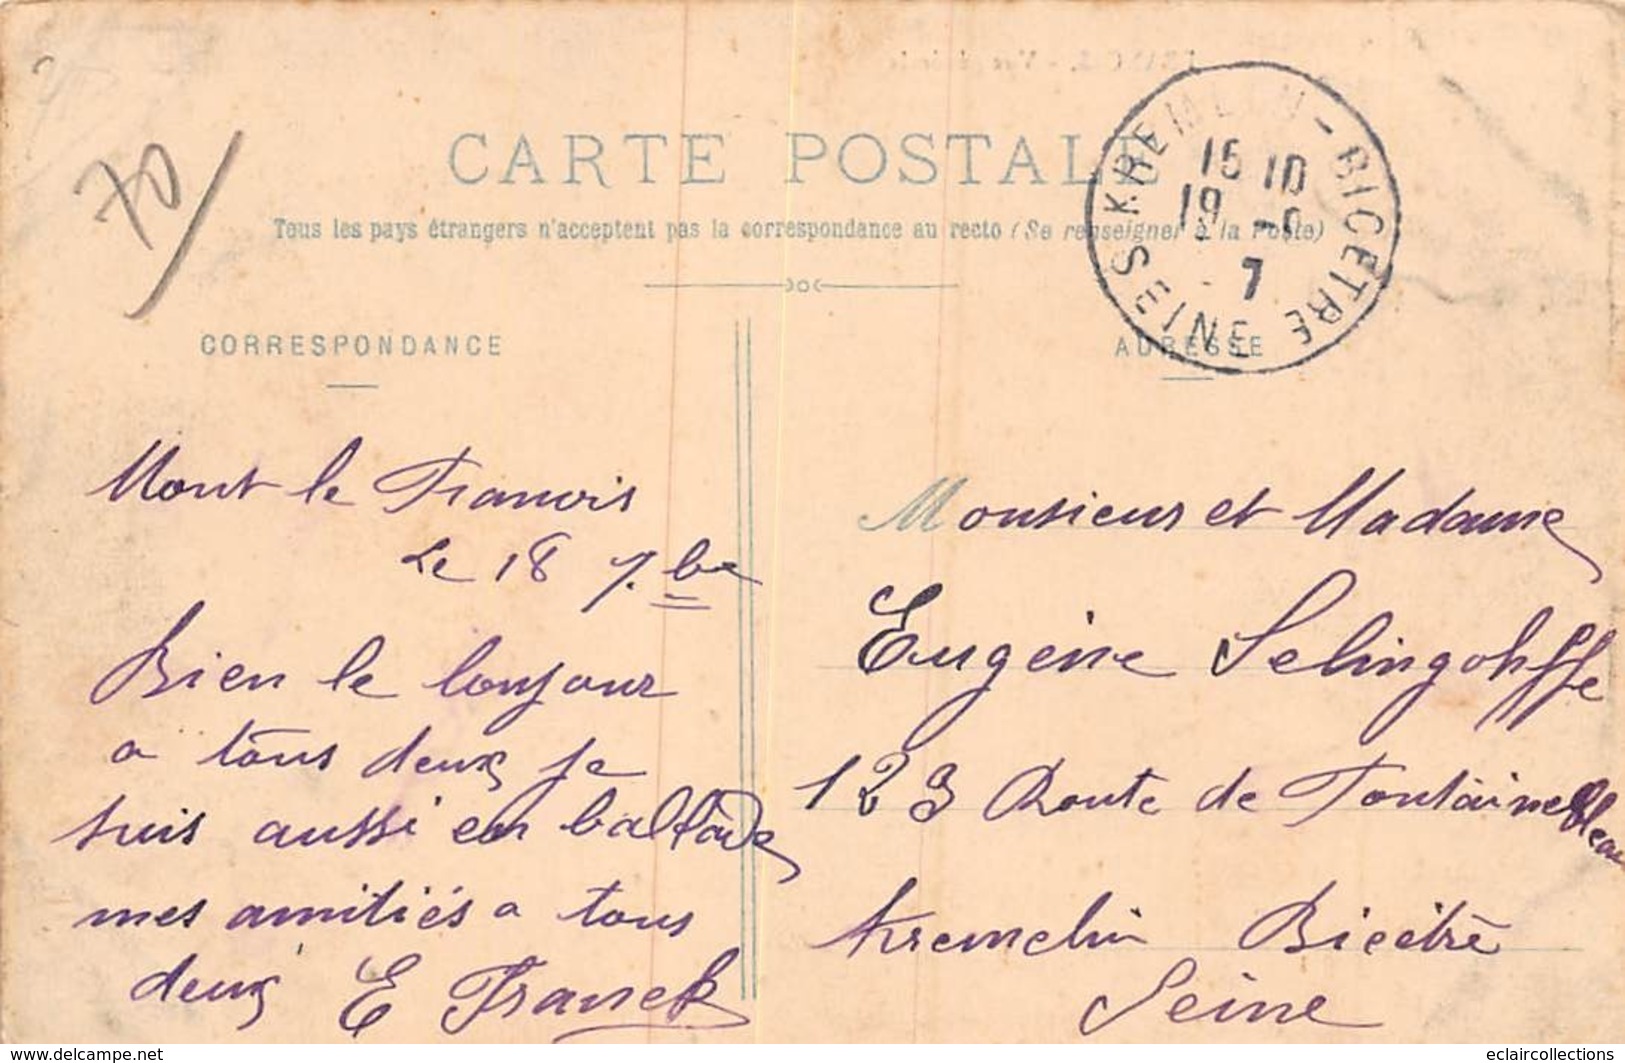 70
CARTE POSTALE
Tous les pays étrangers n'acceptent pas la correspondance au recto (Se renseigner à la Poste)
KREMLIN-BICETRE
15 10
19 -
7
SEINE
CORRESPONDANCE
ADRESSE
Mont le Franois
Le 18 7.be
Bien le bonjour
a tous deux je
suis aussi en ballade
mes amitiés a tous
deux E Franck
Monsieur et Madame
Eugène Selingohffe
123 Route de Fontainebleau
Kremelin Bicètre
Seine
www.delcampe.net
eclaircollections